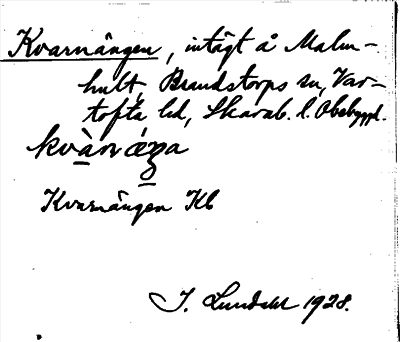 Kvarnängen, intägt å Malm-
hult, Brandstorps sn, Var-
tofta hd, Skarab. l. Obebyggd.
kvàrnæŋa
Kvarnängen Kb
J. Lundahl 1928.